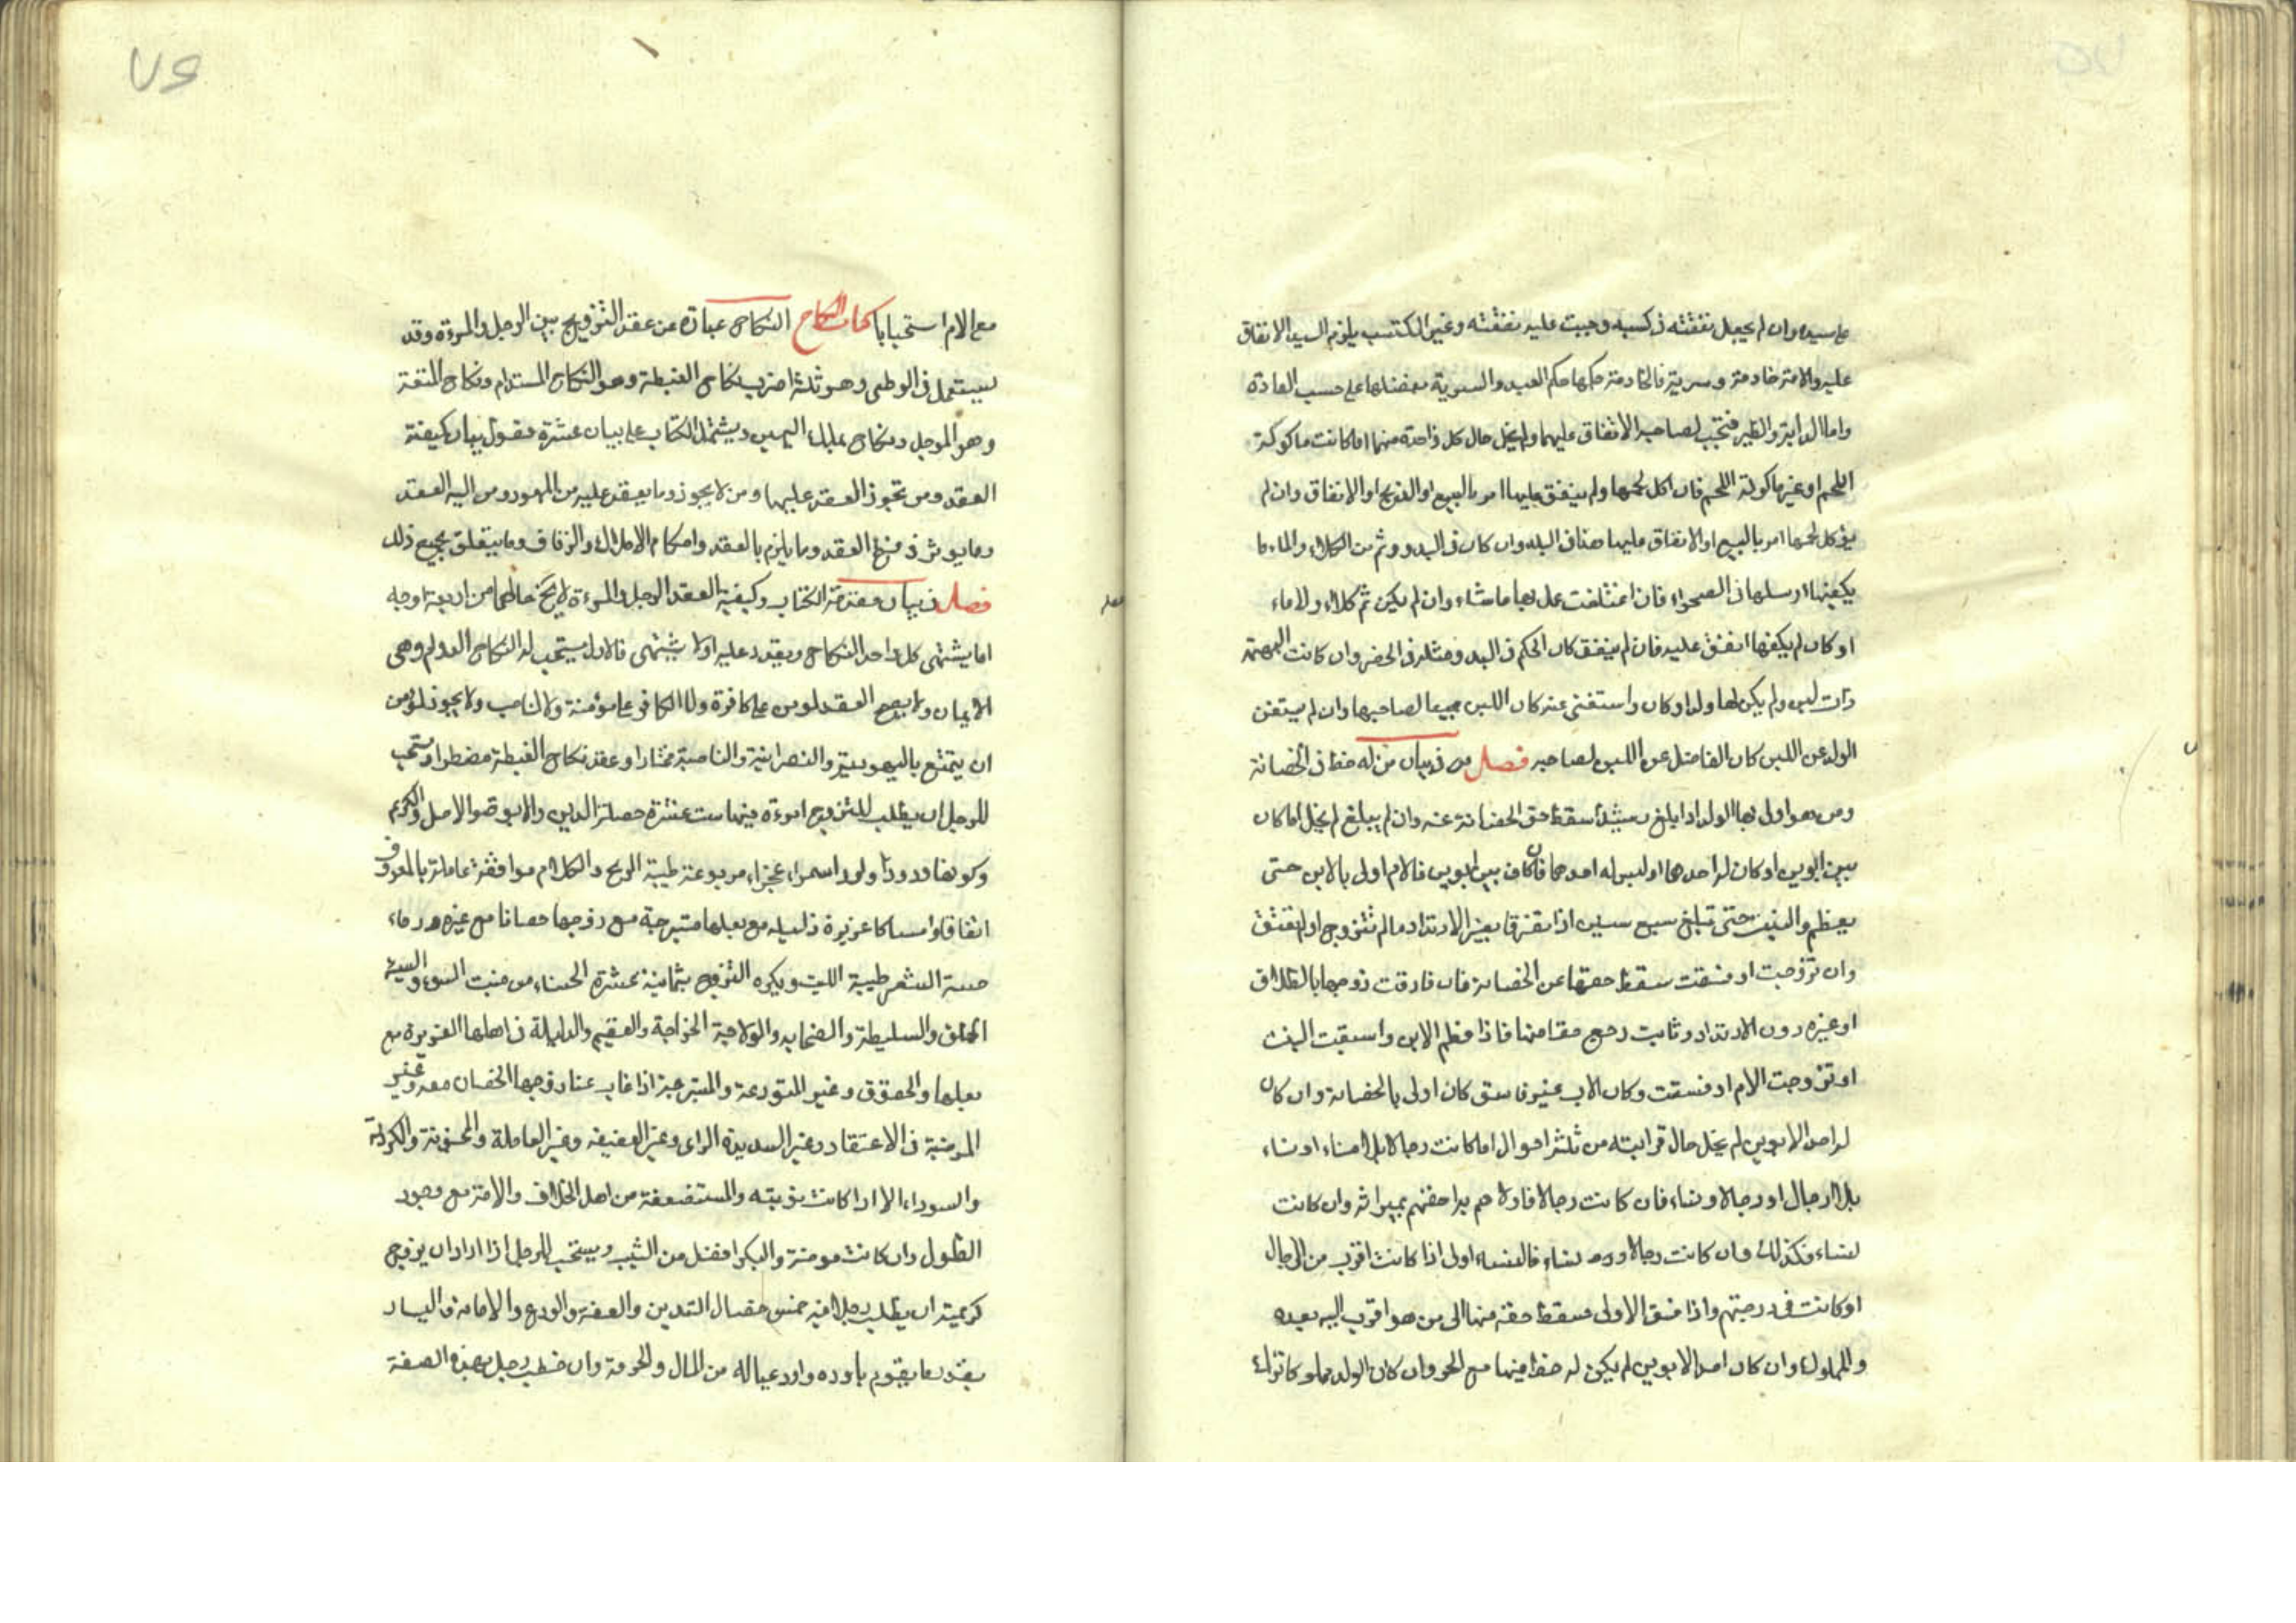 على سيده وان لم يجعل نفقته فى كسبه وجبت عليه نفقته وغير المكتسب يلزم السيد الانفاق
عليه والامة خادمة وسرية فالخادمة حكمها حكم العبد والسرية يفضلها على حسب العادة
واما الدابة والطير فتجب لصاحبه الانفاق عليهما ولم يخل حال كل واحدة منهما اما كانت ماكولة
اللحم او غير ماكولة اللحم فان اكل لحمها ولم ينفق عليها امر بالبيع او الذبح او الانفاق وان لم
يؤكل لحمها امر بالبيع او الانفاق عليها هذا فى البلد وان كان فى البدو وثم من الكلاء والماء ما
يكفيها ارسلها فى الصحراء فان اعتلفت عمل بها ما شاء وان لم يكن ثم كلاء ولا ماء
او كان لم يكفها انفق عليه فان لم ينفق كان الحكم فى البدو مثله فى الحضر وان كانت البهيمة
ذات لبن ولم يكن لها ولد او كان واستغنى عنه كان اللبن جميعا لصاحبها وان لم يستغن
الولد عن اللبن كان الفاضل عن اللبن لصاحبه فصل فى بيان من له حظ فى الحضانة
ومن هو اولى بها الولد اذا بلغ رشيدا سقط حق الحضانة عنه وان لم يبلغ لم يخل اما كان
بين ابوين او كان له احدهما او ليس له احدهما فان كان بين ابوين فالام اولى بالابن حتى
يفطم والبنت حتى تبلغ سبع سنين اذا تفرقا بغير الارتداد ما لم تتزوج او لم تفسق
وان تزوجت او فسقت سقط حقها عن الحضانة فان فارقت زوجها بالطلاق
او غيره دون الارتداد وتابت رجع حقا منها فاذا فطم الابن واستبقت البنت
او تزوجت الام او فسقت وكان الاب غير فاسق كان اولى بالحضانة وان كان
له احد الابوين لم يخل حال قرابته من ثلثة احوال اما كانت رجالا بلا نساء او نساء
بلا رجال او رجالا ونساء فان كانت رجالا فاولاهم به احقهم بميراثه وان كانت
نساء فكذلك وان كانت رجالا ونساء فالنساء اولى اذا كانت اقرب من الرجال
او كانت فى درجتهم واذا فسق الاولى سقط حقه منها الى من هو اقرب اليه بعده
والمملوك وان كان احد الابوين لم يكن له حظ فيها مع الحر وان كان الولد مملوكا ترك
مع الام استحبابا كتاب النكاح النكاح عبارة عن عقد التزويج بين الرجل والمرءة وقد
يستعمل فى الوطى وهو ثلثة اضرب نكاح الغبطة وهو النكاح المستدام ونكاح المتعة
وهو المؤجل ونكاح بملك اليمين ويشتمل الكتاب على بيان عشرة فصول بيان كيفية
العقد ومن تجوز العقد عليها ومن لا يجوز وما يعقد عليه من المهور ومن اليه العقد
وما يوثر فى فسخ العقد وما يلزم بالعقد واحكام الاملاك والزفاف وما يتعلق بجميع ذلك
فصل فى بيان مقدمة الكتاب وكيفية العقد الرجل والمرءة لا يخ حالهما من اربعة اوجه
اما يشتهى كل واحد النكاح ويقدر عليه اولا يشتهى فالاول يستحب له النكاح الدوام وهى
الايمان ولا يصح العقد لمومن على كافرة ولا الكافر على مؤمنة ولا الناصب ولا يجوز للمومن
ان يتمتع باليهودية والنصرانية والناصبة مختارا وعقد نكاح الغبطة مضطرا ويستحب
للرجل ان يطلب للتزويج امرءة فيها ست عشرة خصلة الدين والابوة والاصل والكرم
وكونها ودودا ولودا سمراء عجزاء مربوعة طيبة الريح والكلام موافقة عاملة بالمعروف
انفاقا وامساكا عزيزة ذليلة مع بعلها متبرجة مع زوجها حصانا مع غيره درماء
حسنة الشعر طيبة الليت ويكره التزويج بثمانية عشرة الحسناء من منبت السوء والسيئة
الخلق والسليطة والصخابة والولاجة الخراجة والعقيم والذليلة فى اهلها العزيزة مع
بعلها والحقوق وغير المتورعة والمتبرجة اذا غاب عنها زوجها الحصان معه وغير
المرضية فى الاعتقاد وغير السديدة الراى وغير العفيفة وغير العاملة والمجنونة والكردية
والسوداء الا اذا كانت نوبية والمستضعفة من اهل الخلاف والامة مع وجود
الطول وان كانت مومنة والبكر افضل من الثيب ويستحب للرجل اذا اراد ان يزوج
كريمته ان يطلب رجلا فيه خمس خصال التدين والعفة والورع والامانة واليسار
بقدر ما يقوم باوده واود عياله من المال والحرمة وان خطب رجل بهذه الصفة